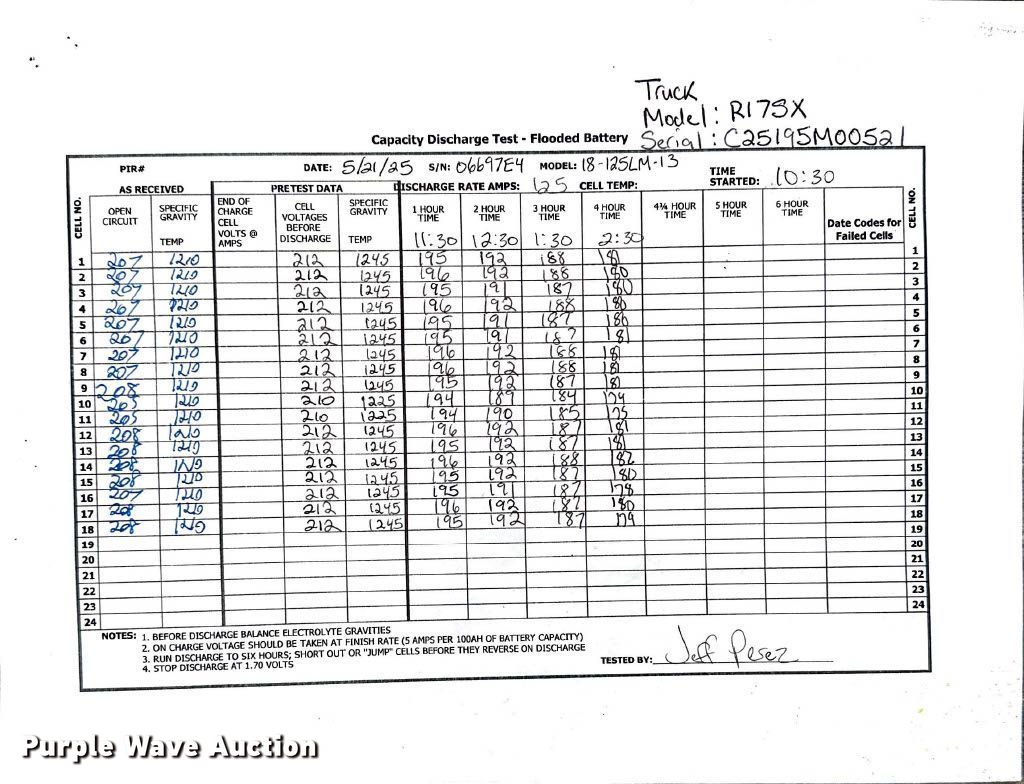 Truck
Model: R17SX
Serial: C25195M00521
Capacity Discharge Test - Flooded Battery
PIR# DATE: 5/21/25 S/N: 06697E4 MODEL: 18-125LM-13 TIME STARTED: 10:30
AS RECEIVED PRETEST DATA DISCHARGE RATE AMPS: 125 CELL TEMP:
CELL NO. OPEN CIRCUIT SPECIFIC GRAVITY TEMP END OF CHARGE CELL VOLTS @ AMPS CELL VOLTAGES BEFORE DISCHARGE SPECIFIC GRAVITY TEMP 1 HOUR TIME 2 HOUR TIME 3 HOUR TIME 4 HOUR TIME 4¾ HOUR TIME 5 HOUR TIME 6 HOUR TIME Date Codes for Failed Cells CELL NO.
11:30 12:30 1:30 2:30
1 207 1210 212 1245 195 192 188 181 1
2 207 1210 212 1245 196 192 188 180 2
3 207 1210 212 1245 195 191 187 180 3
4 207 1210 212 1245 196 192 188 180 4
5 207 1210 212 1245 195 191 187 180 5
6 207 1210 212 1245 195 191 187 181 6
7 207 1210 212 1245 196 192 188 181 7
8 207 1210 212 1245 196 192 188 181 8
9 208 1210 212 1245 195 192 187 181 9
10 205 1210 210 1225 194 189 184 174 10
11 205 1210 210 1225 194 190 185 175 11
12 208 1210 212 1245 196 192 187 181 12
13 208 1210 212 1245 195 192 187 181 13
14 208 1210 212 1245 196 192 188 182 14
15 208 1210 212 1245 195 192 187 180 15
16 207 1210 212 1245 195 191 187 178 16
17 208 1210 212 1245 196 192 187 180 17
18 208 1210 212 1245 195 192 187 179 18
19 20
20 21
21 22
22 23
23 24
24
NOTES: 1. BEFORE DISCHARGE BALANCE ELECTROLYTE GRAVITIES
2. ON CHARGE VOLTAGE SHOULD BE TAKEN AT FINISH RATE (5 AMPS PER 100AH OF BATTERY CAPACITY)
3. RUN DISCHARGE TO SIX HOURS; SHORT OUT OR "JUMP" CELLS BEFORE THEY REVERSE ON DISCHARGE
4. STOP DISCHARGE AT 1.70 VOLTS
TESTED BY: Jeff Perez
Purple Wave Auction